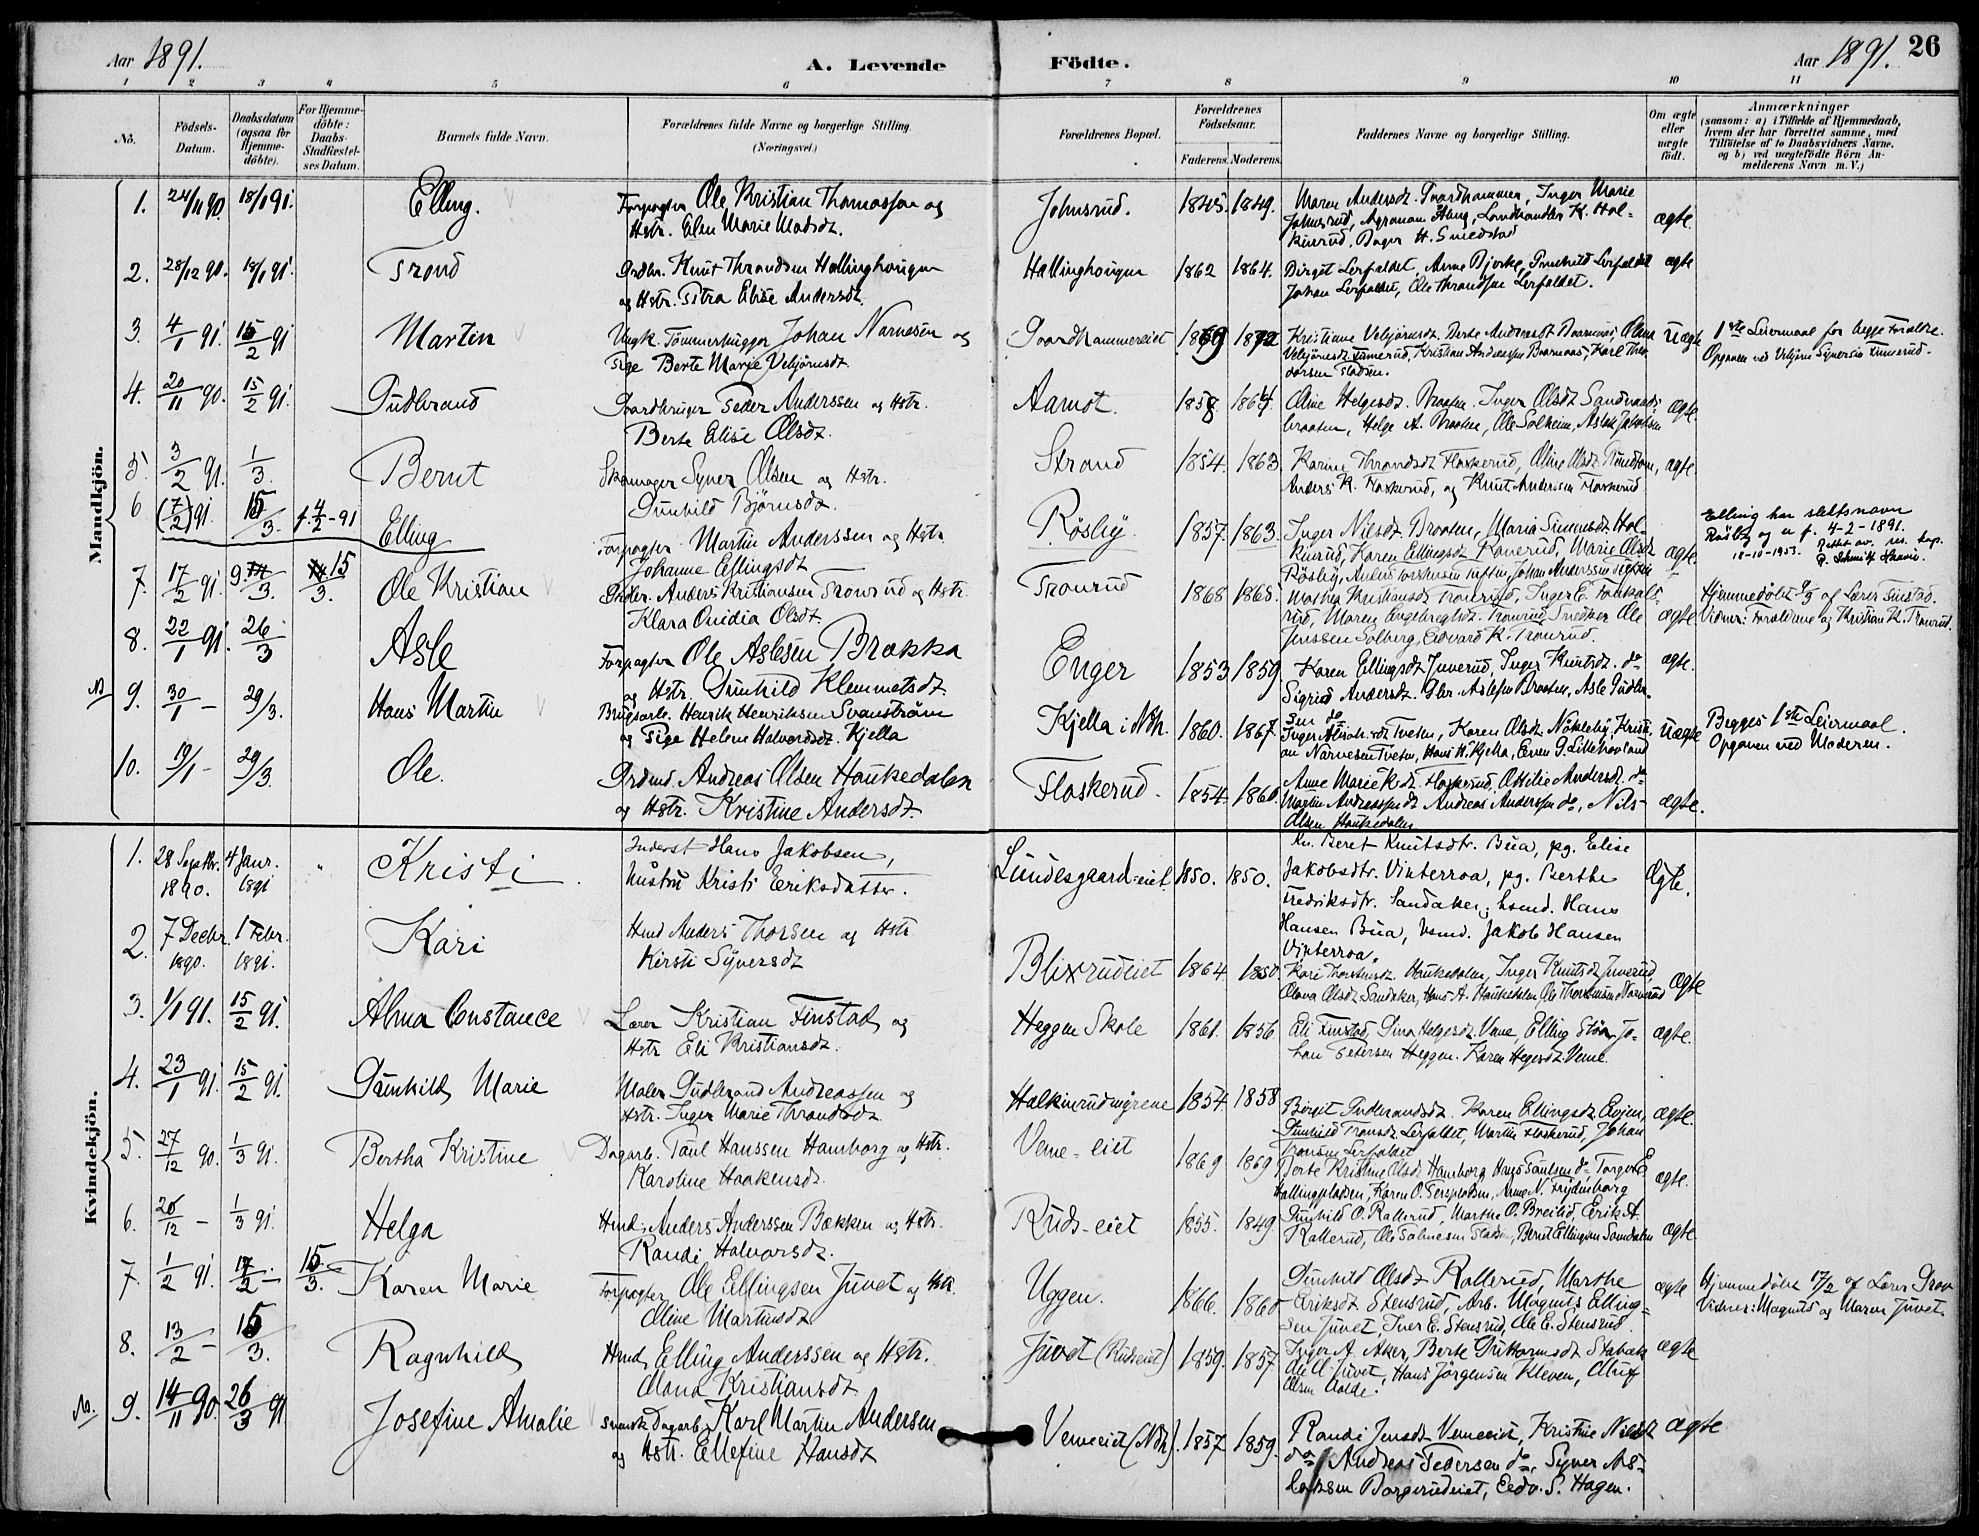 Aar 1891.
A. Levende Födte.
Aar 1891.
26
1 2 3 4 5 6 7 8 9 10 11
No.
Födsels-Datum.
Daabsdatum (ogsaa for Hjemme-döbte).
For Hjemme-döbte: Daabs-Stadfæstel-ses Datum.
Barnets fulde Navn.
Forældrenes fulde Navne og borgerlige Stilling (Næringsvei.)
Forældrenes Bopæl.
Forældrenes Födselsaar.
Faderens. Moderens.
Faddernes Navne og borgerlige Stilling.
Om ægte eller uægte födt.
Anmærkninger
(saasom: a) i Tilfælde af Hjemmedaab, hvem der har forrettet samme, med Tilföielse af to Daabsvidners Navne. og b) ved uægtefödte Börn An-melderens Navn m. V.)
Mandkjön.
1. 24/11 90. 18/1 91. Elling. Forpagter Ole Kristian Thomassen og
Hstr. Elen Marie Madsdt.
Johnsrud. 1845. 1849. Maren Andersdt. Gaardhammer, Inger Marie
Johnsrud, Agronom Aling, Landhandler K. Hal-
kinrud, Dager H. Smedstad
ægte
2. 28/12 90. 18/1 91. Trond Grdbr. Knut Throndsen Hallinghougen
og Hstr. Petra Elise Andersdt.
Hallinghougen 1862 1864. Birgit Lerfaldet, Anne Bjerke, Gunhild Lerfaldet
Johan Lerfaldet, Ole Throndsen Lerfaldet.
ægte
3. 4/1 91. 15/2 91 Martin Ungk. Tømmerhugger Johan Narvesen og
Pige Berte Marie Vebjörnsdt.
Gaardhammereiet 1869 1872 Kristiane Vebjörnsdt.
Uægte 1ste Leiermaal for begge Forældre.
Opgaven ved Vebjörn Syversen Finnerud.
4. 20/11 90. 15/2 91. Gudbrand Gaardbruger Peder Anderssen og Hstr.
Berte Elise Olsdt.
Aamot. 1858 1864. Oline Helgesdt. Braaten. Inger Olsdt Sandvands-
braaten, Helge A. Braaten, Ole Solheim, Aslak Jakobsen
ægte.
5. 3/2 91. 1/3 Bernt Skomager Syver Olsen og Hstr.
Gunhild Björnsdt.
Strand 1854. 1863. Karine Throndsdt Flaskerud, Oline Olsdt.
Anders K. Flaskerud, og Knut Andersen Flaskerud
ægte.
6 (7/2) 91. 15/3. f. 4/2-91 Elling Forpagter Martin Anderssen og Hstr
Johanne Ellingsdt
Røsby. 1857. 1863. Inger Nilsdt Braaten, Maria Simensdt. Hal-
kinrud, Karen Ellingsdt, Marie Olsdt
Rösby,
ægte
Elling har slektsnavn
Røsby og er f. 4-2-1891.
Rettet av. res. kap.
18-10-1953.
7. 17/2 91. 9/3. 15/3. Ole Kristian Grdbr. Anders Kristiansen Tronrud og Hstr.
Klara Ovidia Olsdt.
Tronrud 1868 1868. Mathea Kristiansdt Tronrud, Inger E.
rud, Maren Engebregtsdt. Tronrud, Snedker Ole
Jenssen Solberg, Edvard K. Tronrud.
ægte Hjemmedöbt 9/3 af Lærer Finstad.
Vidner: Forældrene og Kristian K. Tronrud.
8. 22/1 91. 26/3 Asle Forpagter Ole Aslesen Brækka
og Hstr. Gunhild Klemmetsdt.
Enger 1853 1859. Karen Ellingsdt Juverud, Inger Knutsdt. do
Sigrid Andersdt. Gbr. Aslesen Braaten, Asle Gudbr.
sen do
ægte.
N. 9. 30/1 - 29/3. Hans Martin Brugsarb. Henrik Henriksen Svanström
og Pige Helene Halvorsdt. Kjella
Kjella i Ndh. 1860. 1867. Karen Olsdt. Nökleby, Kristi-
an Narvesen Tveten, Hans H. Kjella, Even G. Lillehovland
Uægte Begges 1ste Leiermaal.
Opgaven ved Moderen.
10. 19/1 - 29/3. Ole. Grdmd. Andreas Olsen Haukedalen
og Hstr. Kristine Andersdt.
Flaskerud. 1854. 1860. Anne Marie K.dt. Flaskerud, Ottilie Andersdt. do
Martin Andreassen do Andreas Anderssen do, Nils-
Olsen Haukedalen
ægte.
Kvindekjön.
1. 28 Septbr. 1890. 4 Janr. 1891 " Kristi Inderst Hans Jakobsen,
hustru Kristi Eriksdatter.
Lundesgaard-eiet 1850. 1850. Kv. Beret Knutsdtr. Bua, pg. Elise
Jakobsdtr. Vinterroa, pg. Berthe
Fredriksdtr. Sandaker, husmd. Hans
Hansen Bua, husmd. Jakob Hansen
Vinterroa.
Ægte.
2. 7 Decbr. 1890. 1 Febr. 1891. Kari Hmd Anders Thorsen og Hstr
Kirsti Syversdt
Blixrudeiet 1864 1850. Kari Thorsensdt Haukedalen, Inger Knutsdt Juverud
Olava Olsdt Sandaker, Hans A. Haukedalen Ole Thorsensen Narverud
ægte
3. 1/1 91. 15/2 91. Alma Constance Lærer Kristian Finstad og
Hstr Eli Kristiansdt.
Heggen Skole 1861. 1856. Eli Finstad, Gina Helgesdt. Veme, Elling Støa, Jo-
han Petersen Heggen. Karen Hegesdt. Veme
ægte.
4. 23/1 91. 15/2 91. Gunhild Marie Maler Gudbrand Andreassen og
Hstr. Inger Marie Throndsdt
Halkinrudmyrene 1854. 1858 Birgit Gudbrandsdt. Karen Ellingsdt Evjen,
Gunhild Tronsdt Lerfaldet, Martin Flaskerud, Johan
Tronsen Lerfaldet
ægte.
5. 27/12 90. 1/3 91. Bertha Kristine Dagarb. Paul Hanssen Hamborg og Hstr.
Karoline Haakensdt.
Veme-eiet 1869 1869 Berte Kristine Olsdt Hamborg Hans Paulsen do Torger E
Hallingpladsen, Karen O.
ægte.
6. 26/12 - 1/3 91. Helga Hmd. Anders Anderssen Bækken og Hstr.
Randi Halvorsdt.
Ruds-eiet 1855. 1849 Gunhild O. Rallerud, Marthe O. Breilid, Erik A.
Rallerud, Bernt Ellingsen Samdalen
ægte
7. 1/2 91. 17/2 - 15/3. Karen Marie Forpagter Ole Ellingsen Juvet og Hstr.
Oline Martinsdt
Uggen. 1866. 1860 Gunhild Olsdt Rallerud, Marthe
Eriksdt Stensrud, Arb. Magnus Elling-
sen Juvet, Iver E. Stensrud, Ole E. Stensrud.
ægte Hjemmedöbt 17/2 af Lærer Grov
Vidner: Magnus og Maren Juvet.
8. 13/2 - 15/3. Ragnhild Hmd. Elling Anderssen og Hstr.
Olava Kristiansdt
Juvet (Rudseiet) 1859. 1857. Inger A. Aker, Berte Guttormsdt Stabæk
Ole A. Juvet, Hans Jörgensen Kleven, Oluf
Olsen Aalde.
ægte
N. 9. 14/11 90. 26/3 91 Josefine Amalie Svensk Dagarb. Karl Martin Andersen
og Hstr. Ellefine Hansdt
Vemeeiet (Ndh). 1857. 1859. Randi Jensdt Vemeeiet, Kristine Nilsdt
do Andreas Pedersen do, Syver As-
laksen Borgerudeiet, Edv. S. Hagen.
ægte